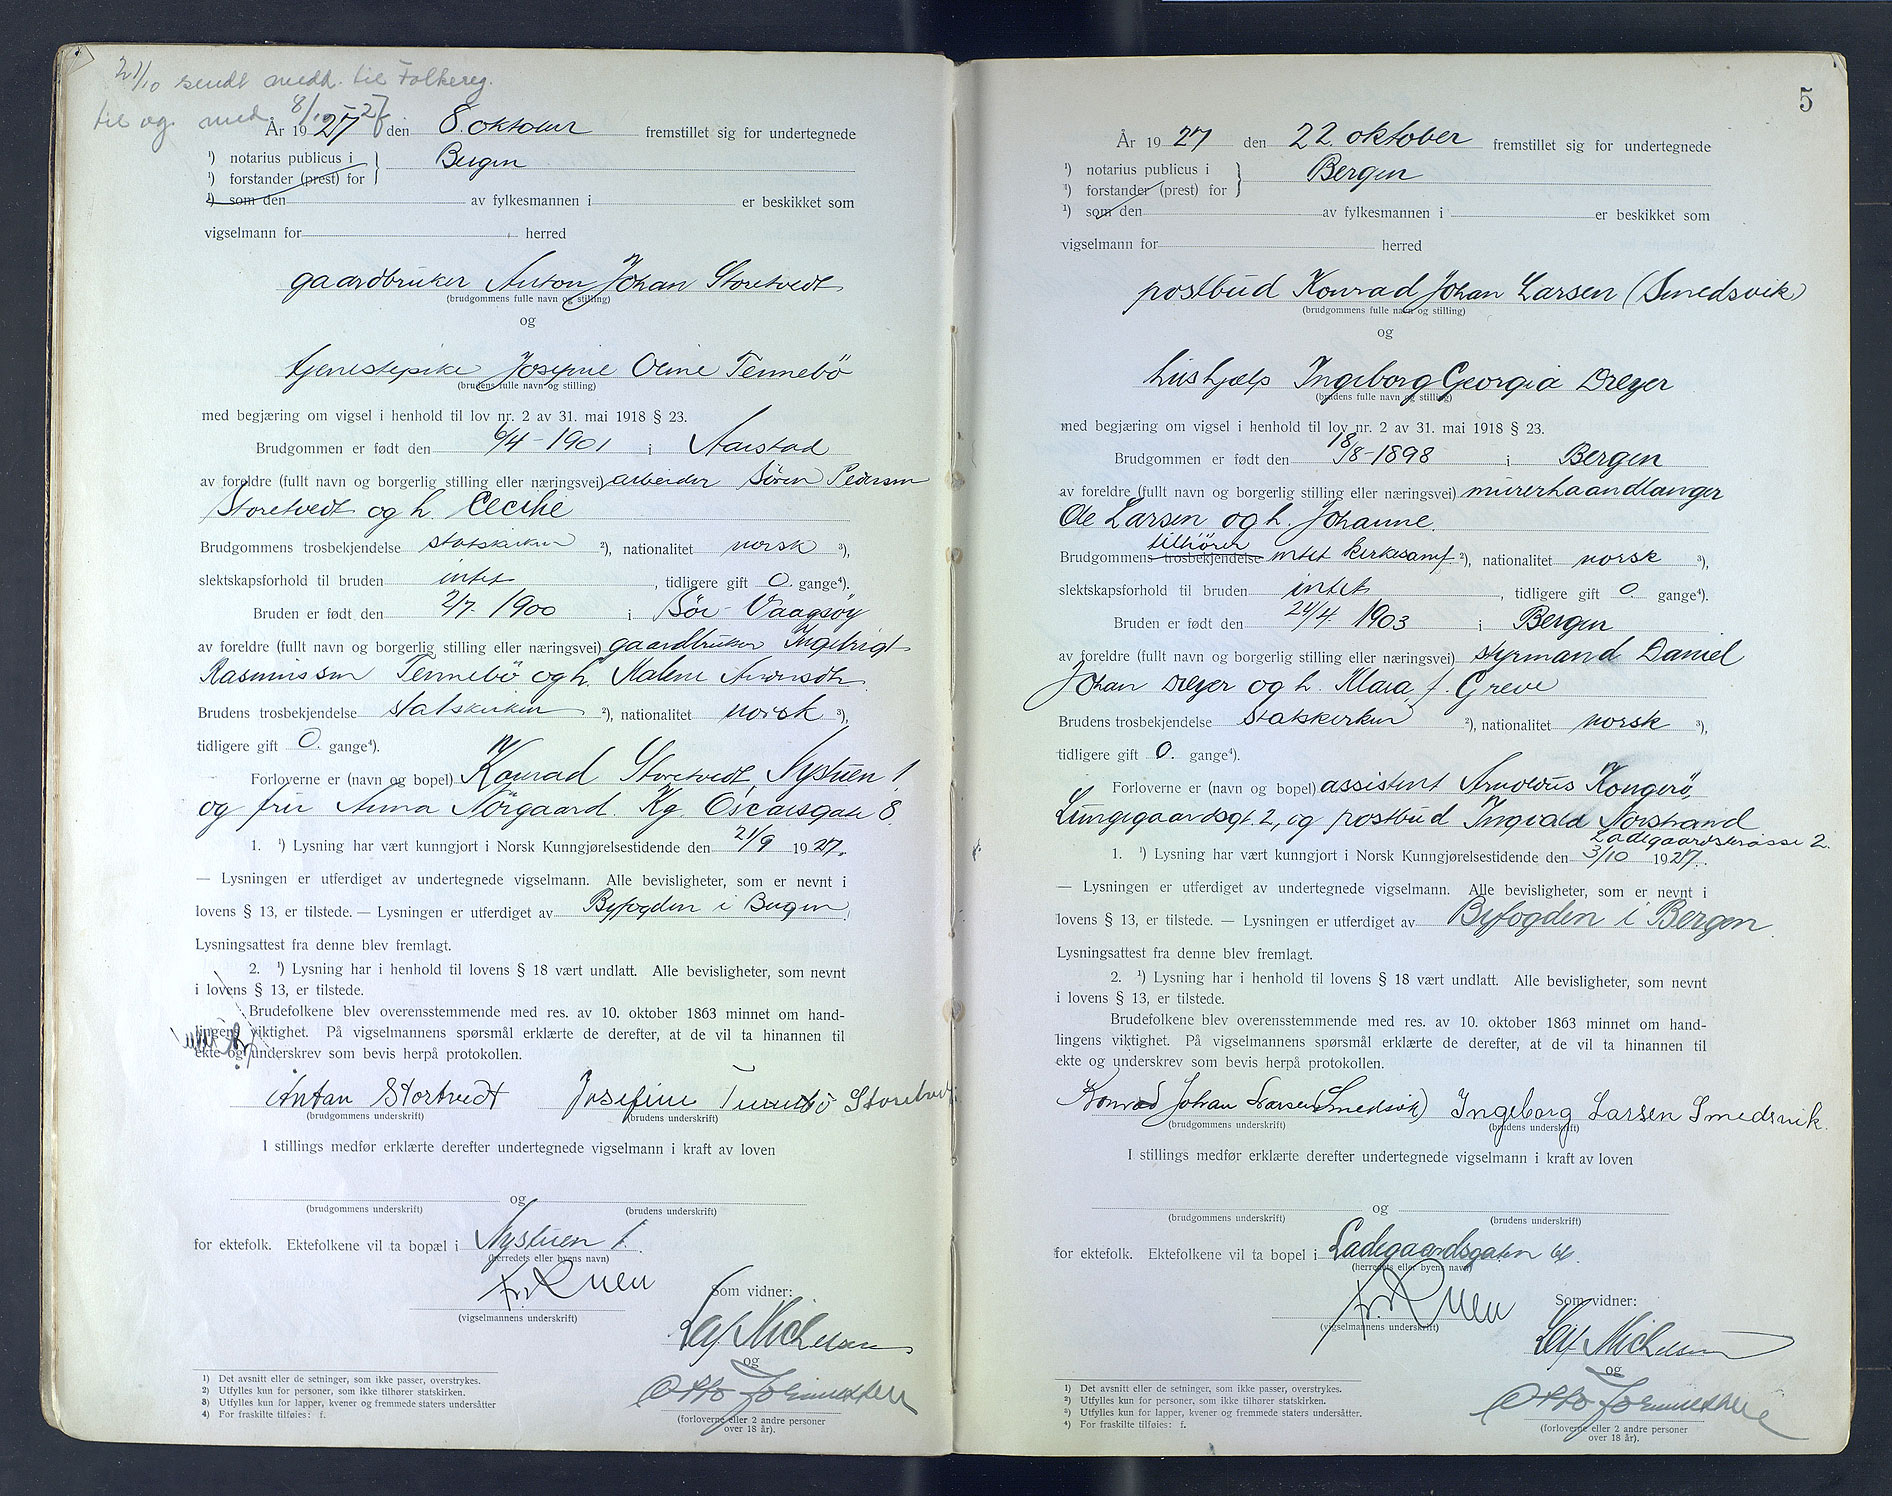 21/10 sendt medd. til Folkereg.
til og med 8/10 27
År 1927 den 8. oktober fremstillet sig for undertegnede
¹) notarius publicus i } Bergen
¹) forstander (prest) for
¹) som den av fylkesmannen i er beskikket som
vigselmann for herred
gaardbruker Anton Johan Storetvedt
(brudgommens fulle navn og stilling)
og
tjenestepike Josefine Oline Tennebö
(brudens fulle navn og stilling)
med begjæring om vigsel i henhold til lov nr. 2 av 31. mai 1918 § 23.
Brudgommen er født den 6/4 - 1901 i Aarstad
av foreldre (fullt navn og borgerlig stilling eller næringsvei) arbeider Sören Pedersen
Storetvedt og h. Cecilie
Brudgommens trosbekjendelse statskirken ²), nationalitet norsk ³),
slektskapsforhold til bruden intet , tidligere gift 0. gange⁴).
Bruden er født den 2/7. 1900 i Sör-Vaagsöy
av foreldre (fullt navn og borgerlig stilling eller næringsvei) gaardbruker Ingebrigt
Rasmussen Tennebö og h. Malene Andersdtr.
Brudens trosbekjendelse statskirken ²), nationalitet norsk ³),
tidligere gift 0. gange⁴).
Forloverne er (navn og bopel) Konrad Storetvedt, Nystuen 1,
og fru Anna Nörgaard. Kg. Oscarsgate 8
1. ¹) Lysning har vært kunngjort i Norsk Kunngjørelsestidende den 21/9 1927.
— Lysningen er utferdiget av undertegnede vigselmann. Alle bevisligheter, som er nevnt i
lovens § 13, er tilstede. — Lysningen er utferdiget av Byfogden i Bergen.
Lysningsattest fra denne blev fremlagt.
2. ¹) Lysning har i henhold til lovens § 18 vært undlatt. Alle bevisligheter, som nevnt
i lovens § 13, er tilstede.
Brudefolkene blev overensstemmende med res. av 10. oktober 1863 minnet om hand-
lingens viktighet. På vigselmannens spørsmål erklærte de derefter, at de vil ta hinannen til
ekte og underskrev som bevis herpå protokollen.
Antan Stortvedt Josefine Tennebö Storetvedt
(brudgommens underskrift) (brudens underskrift)
I stillings medfør erklærte derefter undertegnede vigselmann i kraft av loven
og
(brudgommens underskrift) (brudens underskrift)
for ektefolk. Ektefolkene vil ta bopæl i Nystuen 1.
(herredets eller byens navn)
Som vidner:
(vigselmannens underskrift)
Leif Michelsen
og
Otto Johannessen
(forloverne eller 2 andre personer
over 18 år).
1) Det avsnitt eller de setninger, som ikke passer, overstrykes.
2) Utfylles kun for personer, som ikke tilhører statskirken.
3) Utfylles kun for lapper, kvener og fremmede staters undersåtter
4) For fraskilte tilføies: f.
5
År 1927 den 22. oktober fremstillet sig for undertegnede
¹) notarius publicus i } Bergen
¹) forstander (prest) for
¹) som den av fylkesmannen i er beskikket som
vigselmann for herred
postbud Konrad Johan Larsen (Smedsvik)
(brudgommens fulle navn og stilling)
og
hushjælp Ingeborg Georgia Dreyer
(brudens fulle navn og stilling)
med begjæring om vigsel i henhold til lov nr. 2 av 31. mai 1918 § 23.
Brudgommen er født den 18/8-1898 i Bergen
av foreldre (fullt navn og borgerlig stilling eller næringsvei) murerhaandlanger
Ole Larsen og h. Johanne.
tilhörer
Brudgommens trosbekjendelse intet kirkesamf ²), nationalitet norsk ³),
slektskapsforhold til bruden intet , tidligere gift 0. gange⁴).
Bruden er født den 24/4 1903 i Bergen
av foreldre (fullt navn og borgerlig stilling eller næringsvei) styrmand Daniel
Johan Dreyer og h. Klara, f. Greve
Brudens trosbekjendelse statskirken ²), nationalitet norsk ³),
tidligere gift 0. gange⁴).
Forloverne er (navn og bopel) assistent Arnoldus Kongerö,
Lungegaardsgt. 2, og postbud Ingvald Norstrand
Ladegaardsterasse 2.
1. ¹) Lysning har vært kunngjort i Norsk Kunngjørelsestidende den 3/10 1927.
— Lysningen er utferdiget av undertegnede vigselmann. Alle bevisligheter, som er nevnt i
lovens § 13, er tilstede. — Lysningen er utferdiget av Byfogden i Bergen
Lysningsattest fra denne blev fremlagt.
2. ¹) Lysning har i henhold til lovens § 18 vært undlatt. Alle bevisligheter, som nevnt
i lovens § 13, er tilstede.
Brudefolkene blev overensstemmende med res. av 10. oktober 1863 minnet om hand-
lingens viktighet. På vigselmannens spørsmål erklærte de derefter, at de vil ta hinannen til
ekte og underskrev som bevis herpå protokollen.
Konrad Johan Larsen (Smedsvik) Ingeborg Larsen Smedsvik.
(brudgommens underskrift) (brudens underskrift)
I stillings medfør erklærte derefter undertegnede vigselmann i kraft av loven
og
(brudgommens underskrift) (brudens underskrift)
for ektefolk. Ektefolkene vil ta bopel i Ladegaardsgaten
(herredets eller byens navn)
Som vidner:
(vigselmannens underskrift)
Leif Michelsen
og
Otto Johannessen
(forloverne eller 2 andre personer
over 18 år).
1) Det avsnitt eller de setninger, som ikke passer, overstrykes.
2) Utfylles kun for personer, som ikke tilhører statskirken.
3) Utfylles kun for lapper, kvener og fremmede staters undersåtter.
4) For fraskilte tilføies: f.